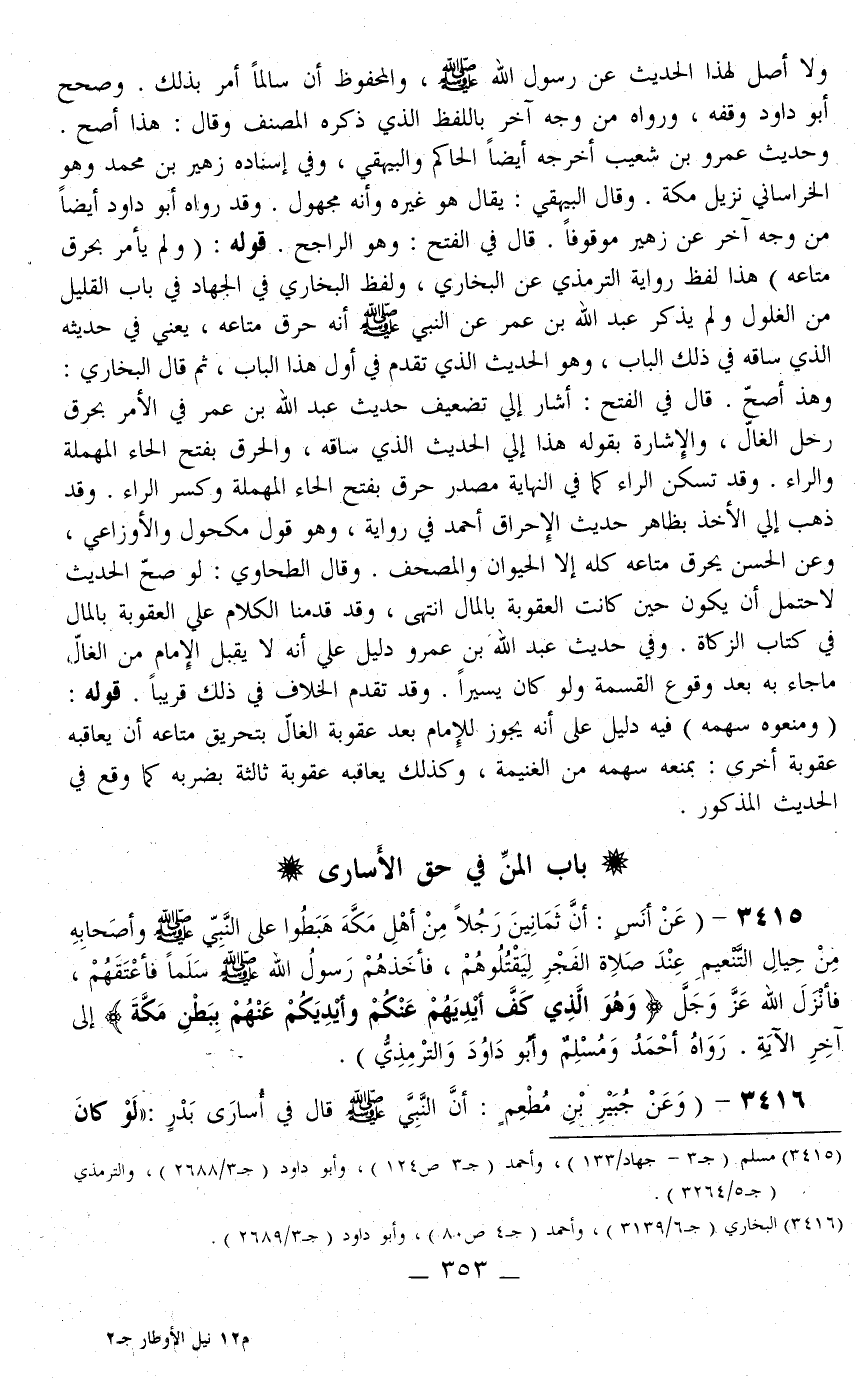 ولا أصل لهذا الحديث عن رسول الله ﷺ ، والمحفوظ أن سالماً أمر بذلك . وصحح
أبو داود وقفه ، ورواه من وجه آخر باللفظ الذي ذكره المصنف وقال : هذا أصح .
وحديث عمرو بن شعيب أخرجه أيضاً الحاكم والبيهقي ، وفي إسناده زهير بن محمد وهو
الخراساني نزيل مكة . وقال البيهقي : يقال هو غيره وأنه مجهول . وقد رواه أبو داود أيضاً
من وجه آخر عن زهير موقوفاً . قال في الفتح : وهو الراجح . قوله : ( ولم يأمر بحرق
متاعه ) هذا لفظ رواية الترمذي عن البخاري ، ولفظ البخاري في الجهاد في باب القليل
من الغلول ولم يذكر عبد الله بن عمر عن النبي ﷺ أنه حرق متاعه ، يعني في حديثه
الذي ساقه في ذلك الباب ، وهو الحديث الذي تقدم في أول هذا الباب ، ثم قال البخاري :
وهذ أصحّ . قال في الفتح : أشار إلي تضعيف حديث عبد الله بن عمر في الأمر بحرق
رحل الغالّ ، والإشارة بقوله هذا إلي الحديث الذي ساقه ، والحرق بفتح الحاء المهملة
والراء . وقد تسكن الراء كما في النهاية مصدر حرق بفتح الحاء المهملة وكسر الراء . وقد
ذهب إلي الأخذ بظاهر حديث الإحراق أحمد في رواية ، وهو قول مكحول والأوزاعي ،
وعن الحسن يحرق متاعه كله إلا الحيوان والمصحف . وقال الطحاوي : لو صحّ الحديث
لاحتمل أن يكون حين كانت العقوبة بالمال انتهى ، وقد قدمنا الكلام علي العقوبة بالمال
في كتاب الزكاة . وفي حديث عبد الله بن عمرو دليل علي أنه لا يقبل الإمام من الغالّ
ماجاء به بعد وقوع القسمة ولو كان يسيراً . وقد تقدم الخلاف في ذلك قريباً . قوله :
( ومنعوه سهمه ) فيه دليل على أنه يجوز للإمام بعد عقوبة الغالّ بتحريق متاعه أن يعاقبه
عقوبة أخري : بمنعه سهمه من الغنيمة ، وكذلك يعاقبه عقوبة ثالثة بضربه كما وقع في
الحديث المذكور .
باب المنّ في حق الأَسارى
٣٤١٥ – ( عَنْ أنَسٍ : أنَّ ثَمَانِينَ رَجُلاً مِنْ أهْلِ مَكَّةَ هَبَطُوا على النَّبِيّ ﷺ وأصَحابِهِ
مِنْ حِيالِ التَّنْعيمِ عِنْدَ صَلاةِ الفَجْرِ لِيَقْتُلُوهُمْ ، فأخَذهُمْ رَسولُ الله ﷺ سَلَماً فأعْتَقَهُمْ ،
فأنْزَلَ الله عَزَّ وَجَلَّ ﴿ وَهُوَ الَّذِي كَفَّ أيْدِيَهُمْ عَنْكُمْ وأيْدِيَكُمْ عَنْهُمْ بِبَطْنِ مَكَّةَ ﴾ إلى
آخِرِ الآيَةِ . رَوَاهُ أحْمَدُ وَمُسْلِمٌ وأبُو دَاوُدَ وَالتِرْمِذِيُّ ) .
٣٤١٦ – ( وَعَنْ جُبَيْرِ بْنِ مُطْعِمٍ : أنَّ النَّبِيَّ ﷺ قال في أُسارَى بَدْرٍ :«لَوْ كانَ
(٣٤١٥) مسلم ( جـ٣ – جهاد/١٣٣ ) ، وأحمد ( جـ٣ ص١٢٤ ) ، وأبو داود ( جـ٢٦٨٨/٣ ) ، والترمذي
( جـ٣٢٦٤/٥ ) .
(٣٤١٦) البخاري ( جـ٣١٣٩/٦ ) ، وأحمد ( جـ٤ ص٨٠ ) ، وأبو داود ( جـ٢٦٨٩/٣ ) .
— ٣٥٣ —
م١٢ نيل الأوطار جـ٢